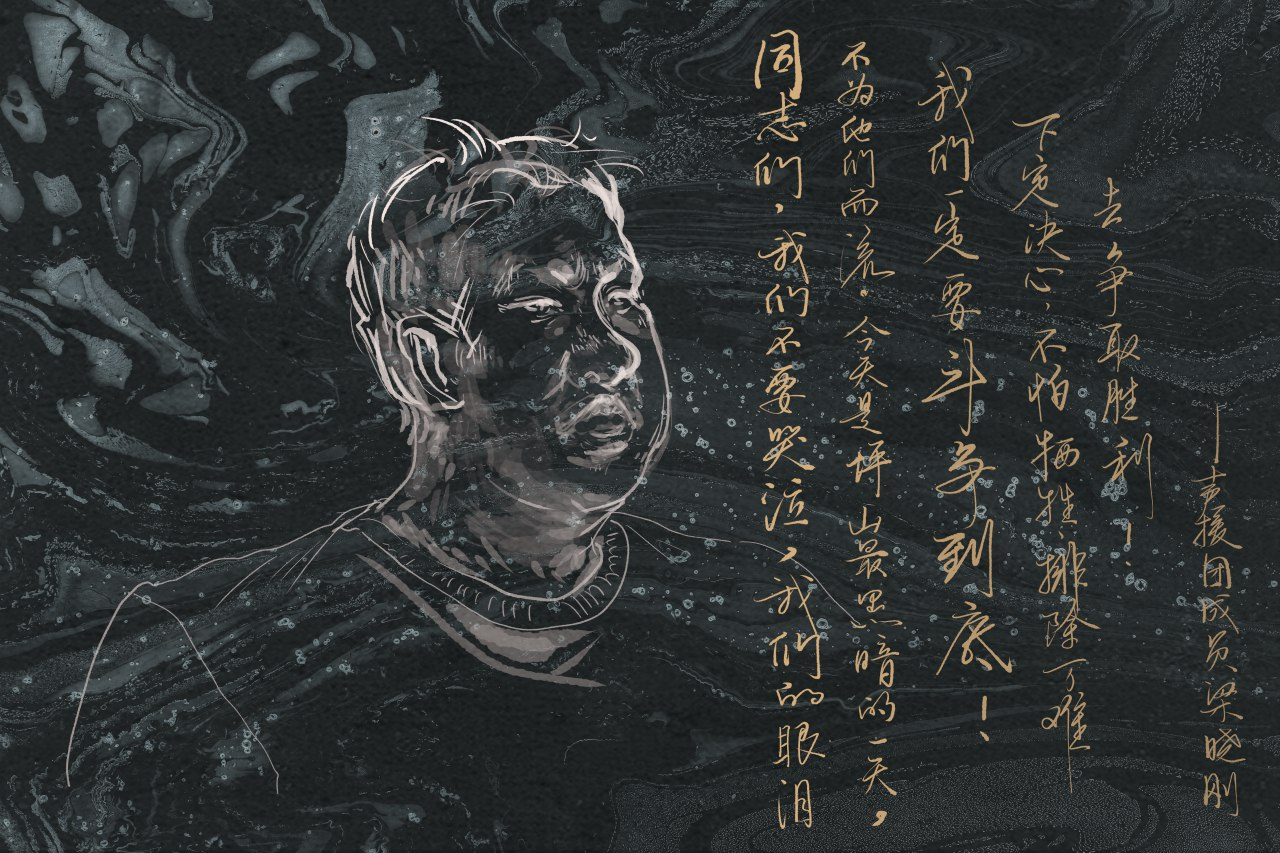 同志们，我们不要哭泣，我们的眼泪
不为他们而流。今天是坪山最黑暗的一天，
我们一定要斗争到底！
下定决心、不怕牺牲、排除万难
去争取胜利！
—声援团成员、梁晓刚